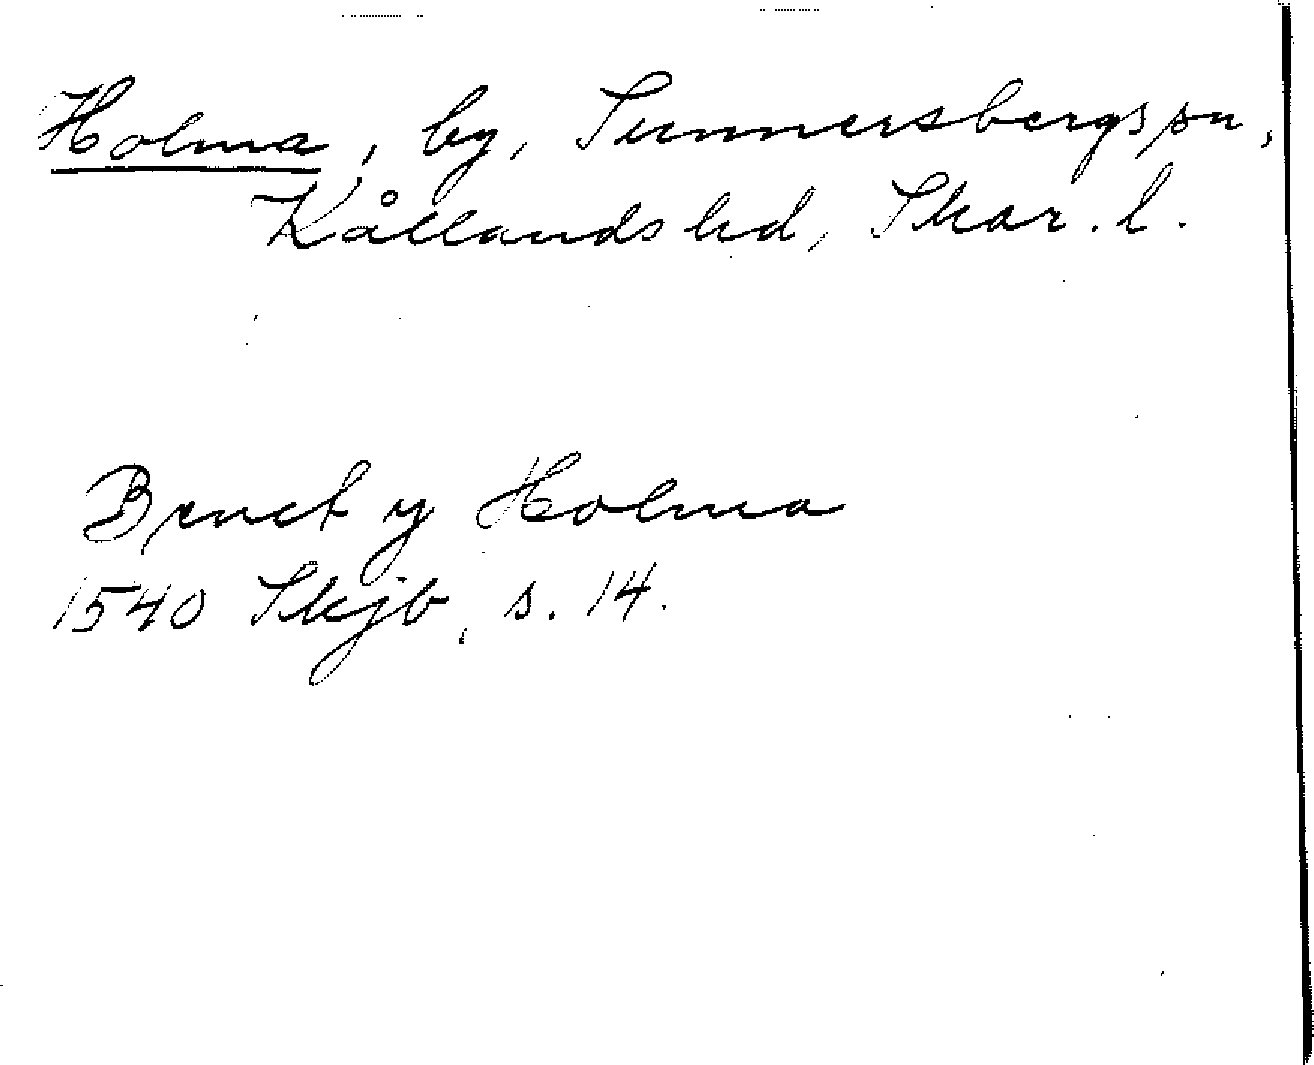 Holma, by, Sunnersbergs sn,
Kållands hd, Skar. l.
Benct y Holma
1540 Skjb, s. 14.